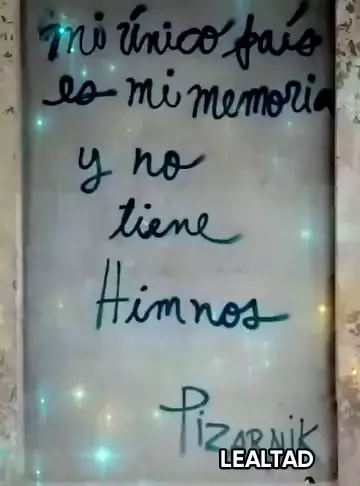 mi único país
es mi memoria
y no
tiene
Himnos
Pizarnik
LEALTAD